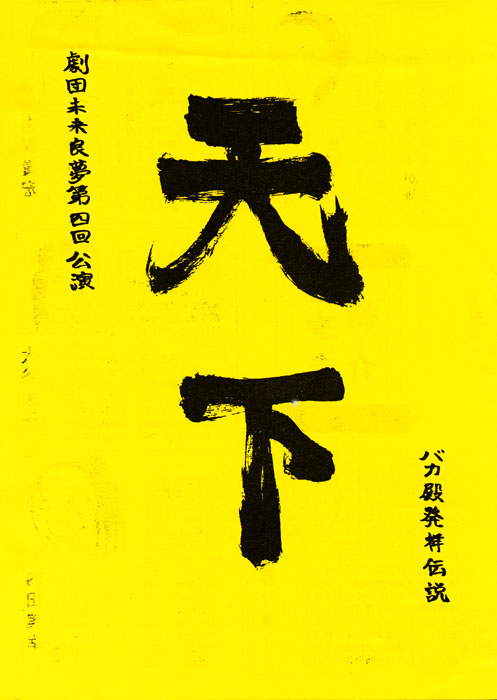 バカ殿発祥伝説
天下
劇団未来良夢第四回公演